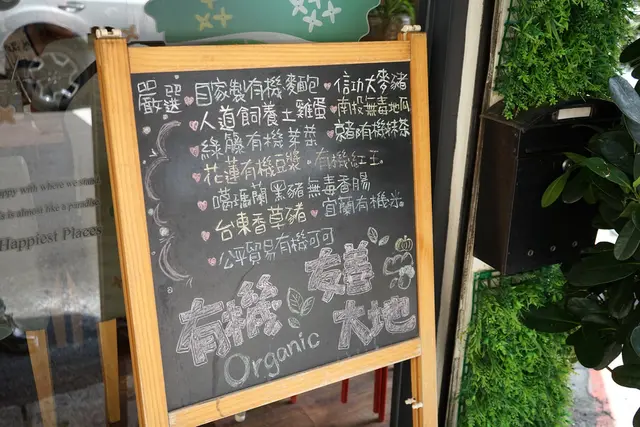 嚴選
自家製有機麥麭
信功大麥豬
人道飼養土雞蛋
南投無毒地瓜
綠藤有機菜菜
京都有機抹茶
花蓮有機豆漿
有機紅玉
噶瑪蘭黑豬無毒香腸
台東香草豬
宜蘭有機米
公平貿易有機可可
有機
友善
大地
Organic
ppy with where we stand
is almost like a paradise
Happiest Places